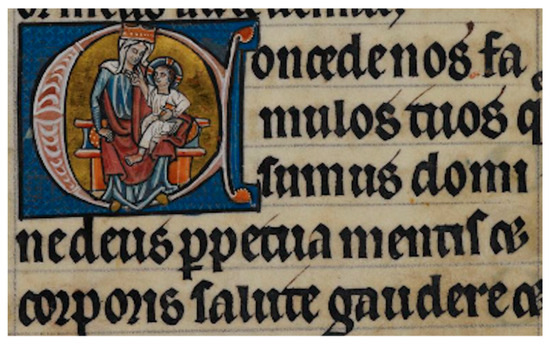 Concede nos fa
mulos tuos q
sumus domi
ne deus ꝑpetua mentis et
corporis salute gaudere et